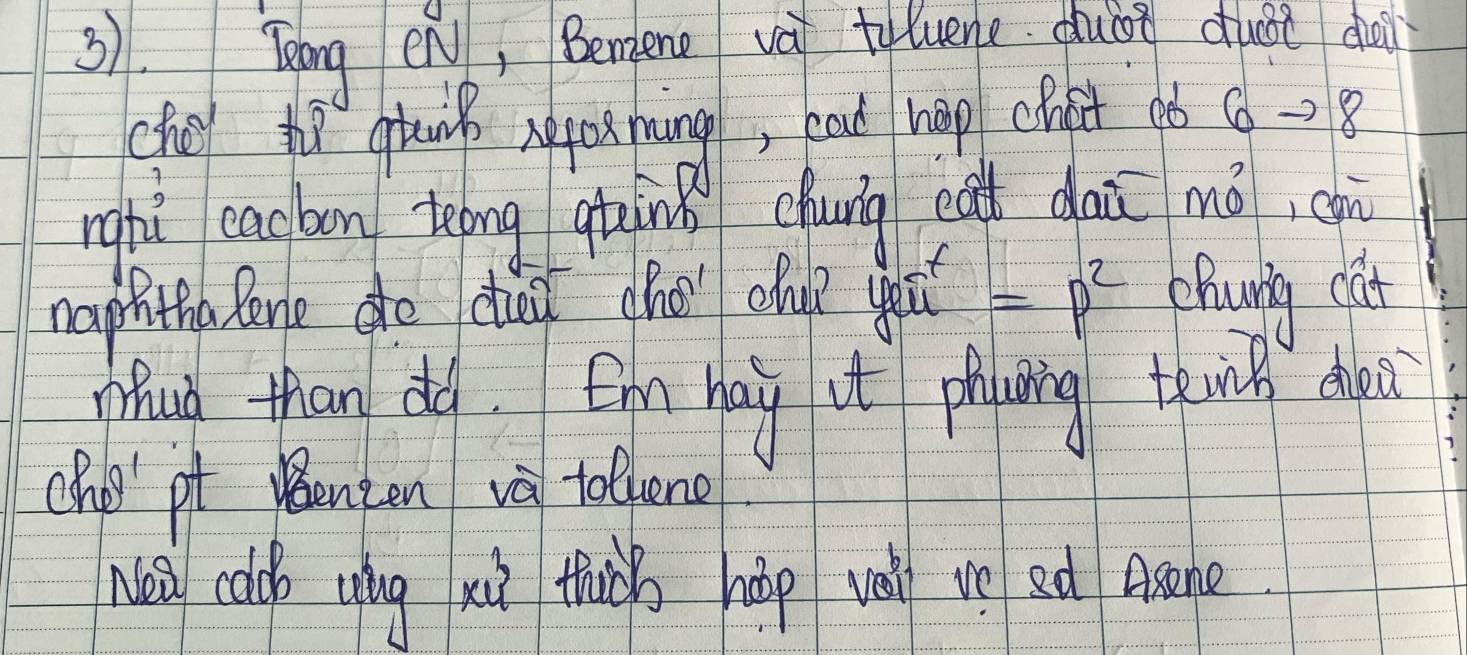 3). Trong CN, Benzene và toluene được được điều
chế từ qtrình reforming, các hợp chất có 6 → 8
nghỉ cacbon trong qtrình chưng cất dầu mỏ, còn
naphthalene đc điều chế chủ yếu = p² chưng cất
nhựa than đá. Em hãy vt phương trình điều
chế pt Benzen và toluene
Nêu cách ứng xử thích hợp với vc sd Arene.